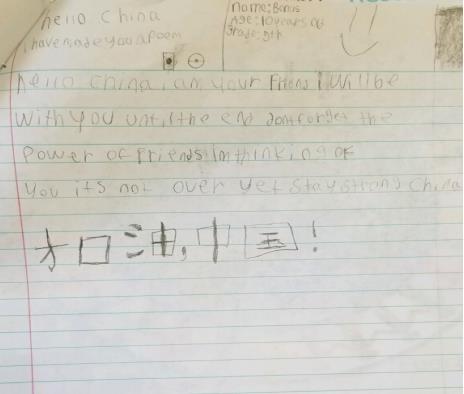 hello China
i have made you a poem
Name: Bonus
Age: 10 years old
Grade: 5th
hello China i am your Friend i will be
with you until the end dont forget the
Power of Friends im thinking of
you its not over yet stay strong China
加油,中国!